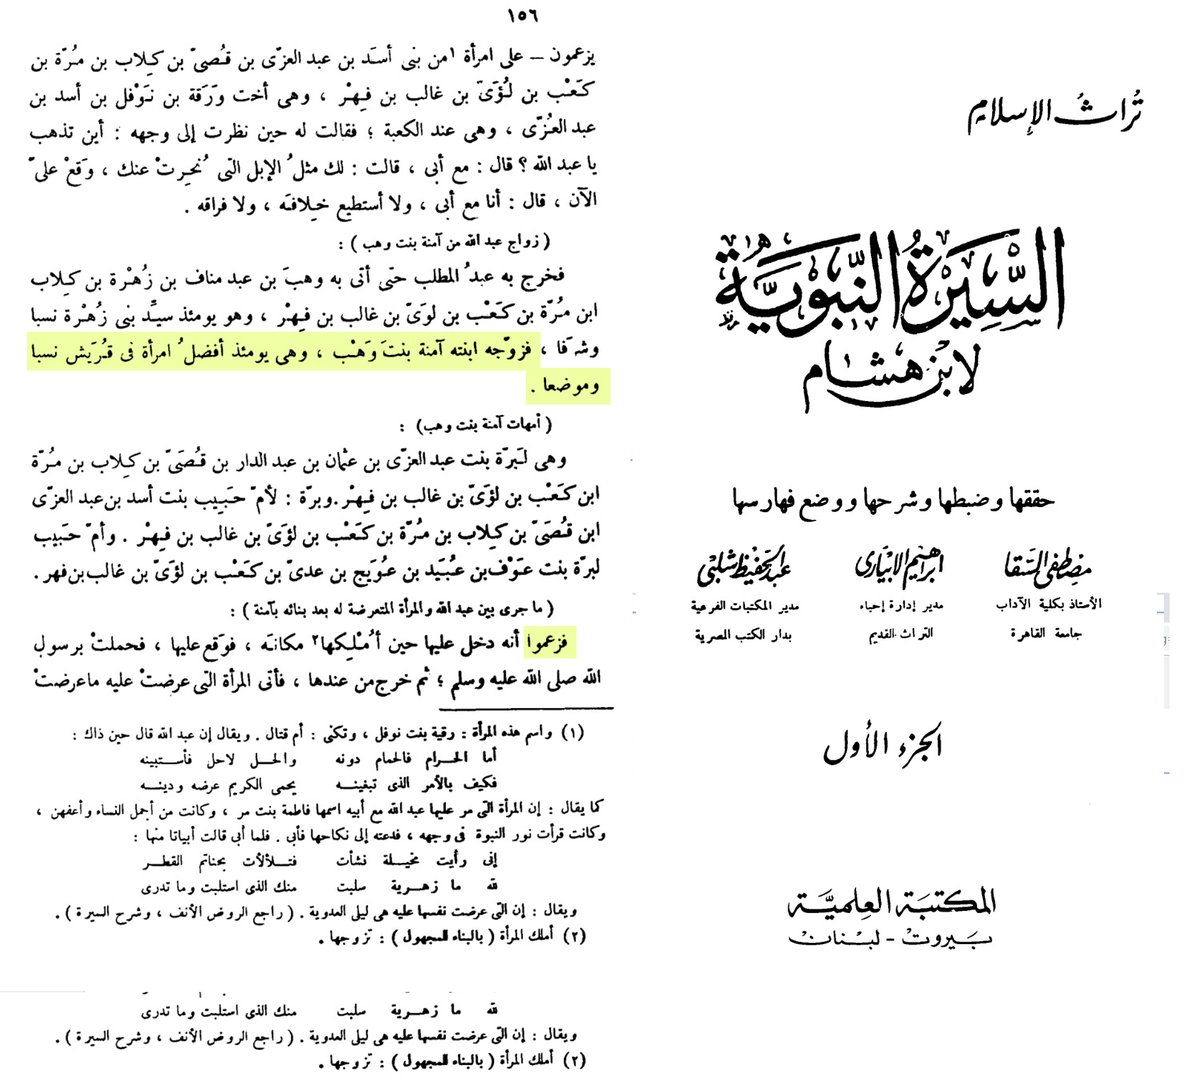 ١٥٦
يزعمون – على امرأة ١ من بنى أسَد بن عبد العزّى بن قُصىّ بن كلاب بن مُرّة بن
كَعْب بن لُؤَىّ بن غالب بن فِهْر ، وهى أخت وَرَقة بن نَوْفل بن أسد بن
عبد العُزّى ، وهى عند الكعبة ؛ فقالت له حين نظرت إلى وجهه : أين تذهب
يا عبد الله ؟ قال : مع أبى ، قالت : لك مثلُ الإبل التى نُحِرتْ عنك ، وَقَعْ علىّ
الآن ، قال : أنا مع أبى ، ولا أستطيع خِلافَه ، ولا فراقه .
( زواج عبد الله من آمنة بنت وهب ) :
فخرج به عبدُ المطلب حتى أتى به وهبَ بن عبد مناف بن زُهْرة بن كلاب
ابن مُرّة بن كَعْب بن لوَىّ بن غالب بن فِهْر ، وهو يومئذ سيِّد بنى زُهْرة نسبا
وشرَفا ، فزوّجه ابنته آمنة بنتَ وَهْب ، وهى يومئذ أفضلُ امرأة فى قُرَيش نسبا
وموضعا .
( أمهات آمنة بنت وهب ) :
وهى لبَرّة بنت عبد العزّى بن عثمان بن عبد الدار بن قُصَىّ بن كِلاب بن مُرّة
ابن كَعْب بن لؤىّ بن غالب بن فِهْر . وبرّة : لأمّ حَبِيب بنت أسد بن عبد العزى
ابن قُصَىّ بن كِلاب بن مُرّة بن كَعْب بن لؤىّ بن غالب بن فِهْر . وأمّ حَبيب
لبرّة بنت عَوْف بن عُبَيد بن عُوَيج بن عدىّ بن كَعْب بن لؤىّ بن غالب بن فهر .
( ما جرى بين عبد الله والمرأة المتعرضة له بعد بنائه بآمنة ) :
فزعموا أنه دخل عليها حين أُمْلِكها ٢ مكانَه ، فوَقع عليها ، فحملتْ برسول
الله صلى الله عليه وسلم ؛ ثم خرج من عندها ، فأتى المرأة التى عرضتْ عليه ما عرضتْ
(١) واسم هذه المرأة : رقية بنت نوفل ، وتكنى : أم قتال . ويقال إن عبد الله قال حين ذاك :
أما الحرام فالحمام دونه والحل لاحل فأستبينه
فكيف بالأمر الذى تبغينه يحمى الكريم عرضه ودينه
كما يقال : إن المرأة التى مر عليها عبد الله مع أبيه اسمها فاطمة بنت مر ، وكانت من أجمل النساء وأعفهن ،
وكانت قرأت نور النبوة فى وجهه ، فدعته إلى نكاحها فأبى . فلما أبى قالت أبياتا منها :
إنى رأيت مخيلة نشأت فتلألأت بحناتم القطر
لله ما زهرية سلبت منك الذى استلبت وما تدرى
ويقال : إن التى عرضت نفسها عليه هى ليلى العدوية . ( راجع الروض الأنف ، وشرح السيرة ) .
(٢) أملك المرأة ( بالبناء للمجهول ) : تزوجها .
لله ما زهرية سلبت منك الذى استلبت وما تدرى
ويقال : إن التى عرضت نفسها عليه هى ليلى العدوية . ( راجع الروض الأنف ، وشرح السيرة ) .
(٢) أملك المرأة ( بالبناء للمجهول ) : تزوجها .
تُراثُ الإسلام
السِّيرَةُ النَّبَوِيَّة
لابن هشام
حققها وضبطها وشرحها ووضع فهارسها
مصطفى السَّقا
إبراهيم الأبيارى
عبد الحفيظ شلبى
الأستاذ بكلية الآداب
مدير إدارة إحياء
مدير المكتبات الفرعية
جامعة القاهرة
التراث القديم
بدار الكتب المصرية
الجزء الأول
المكتبَة العِلميَّة
بَيروت - لبنان